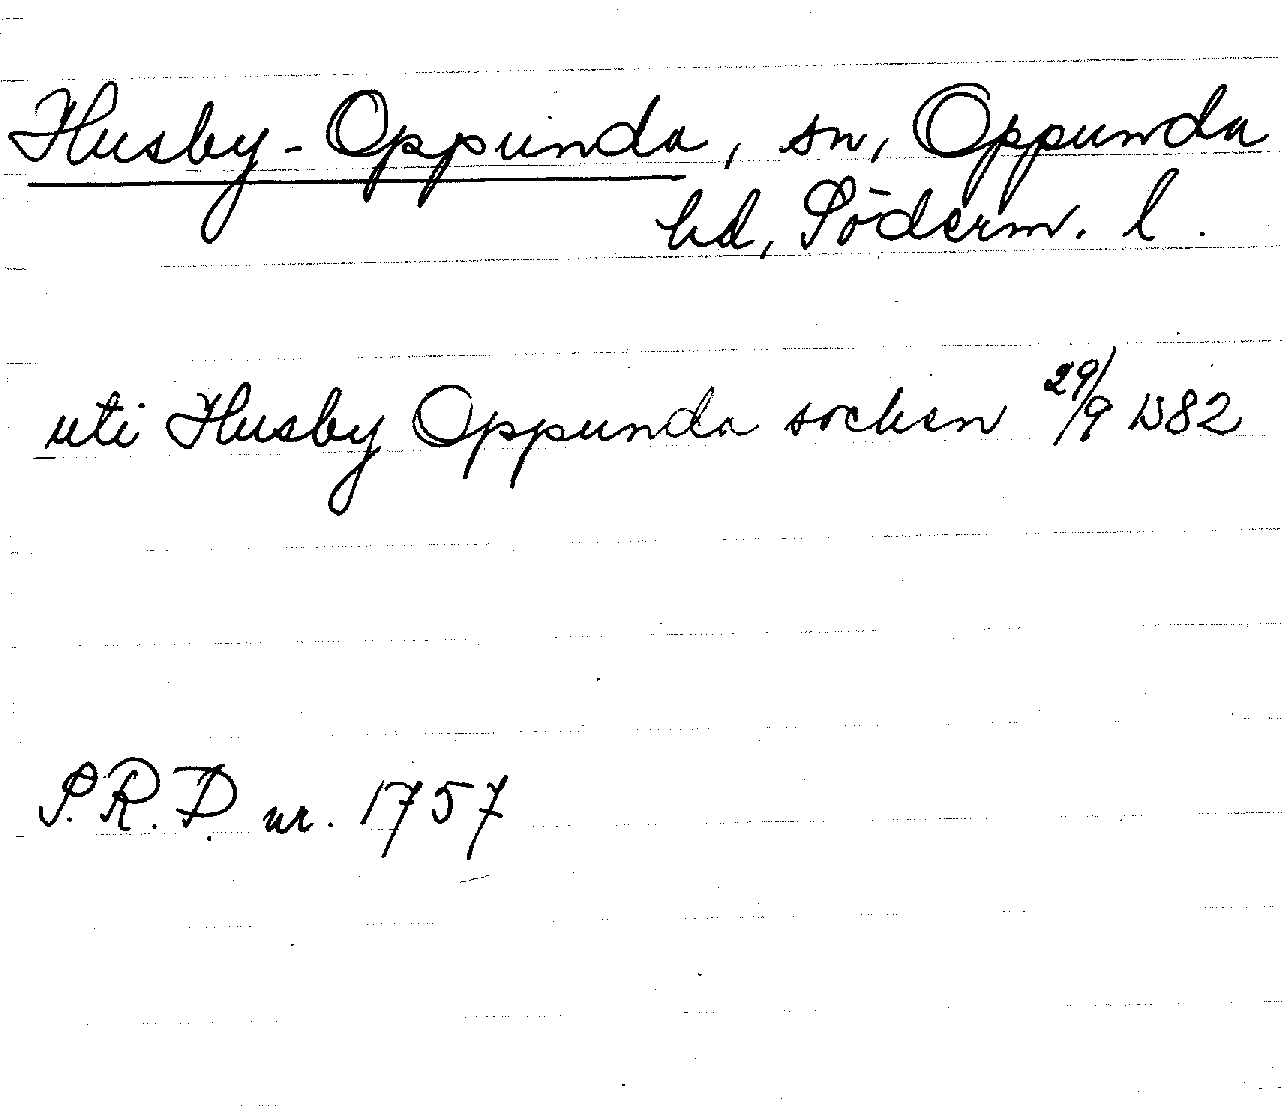 Husby-Oppunda, sn, Oppunda
hd, Söderm. l.
uti Husby Oppunda socken 29/9 1382
S.R.P. nr. 1757